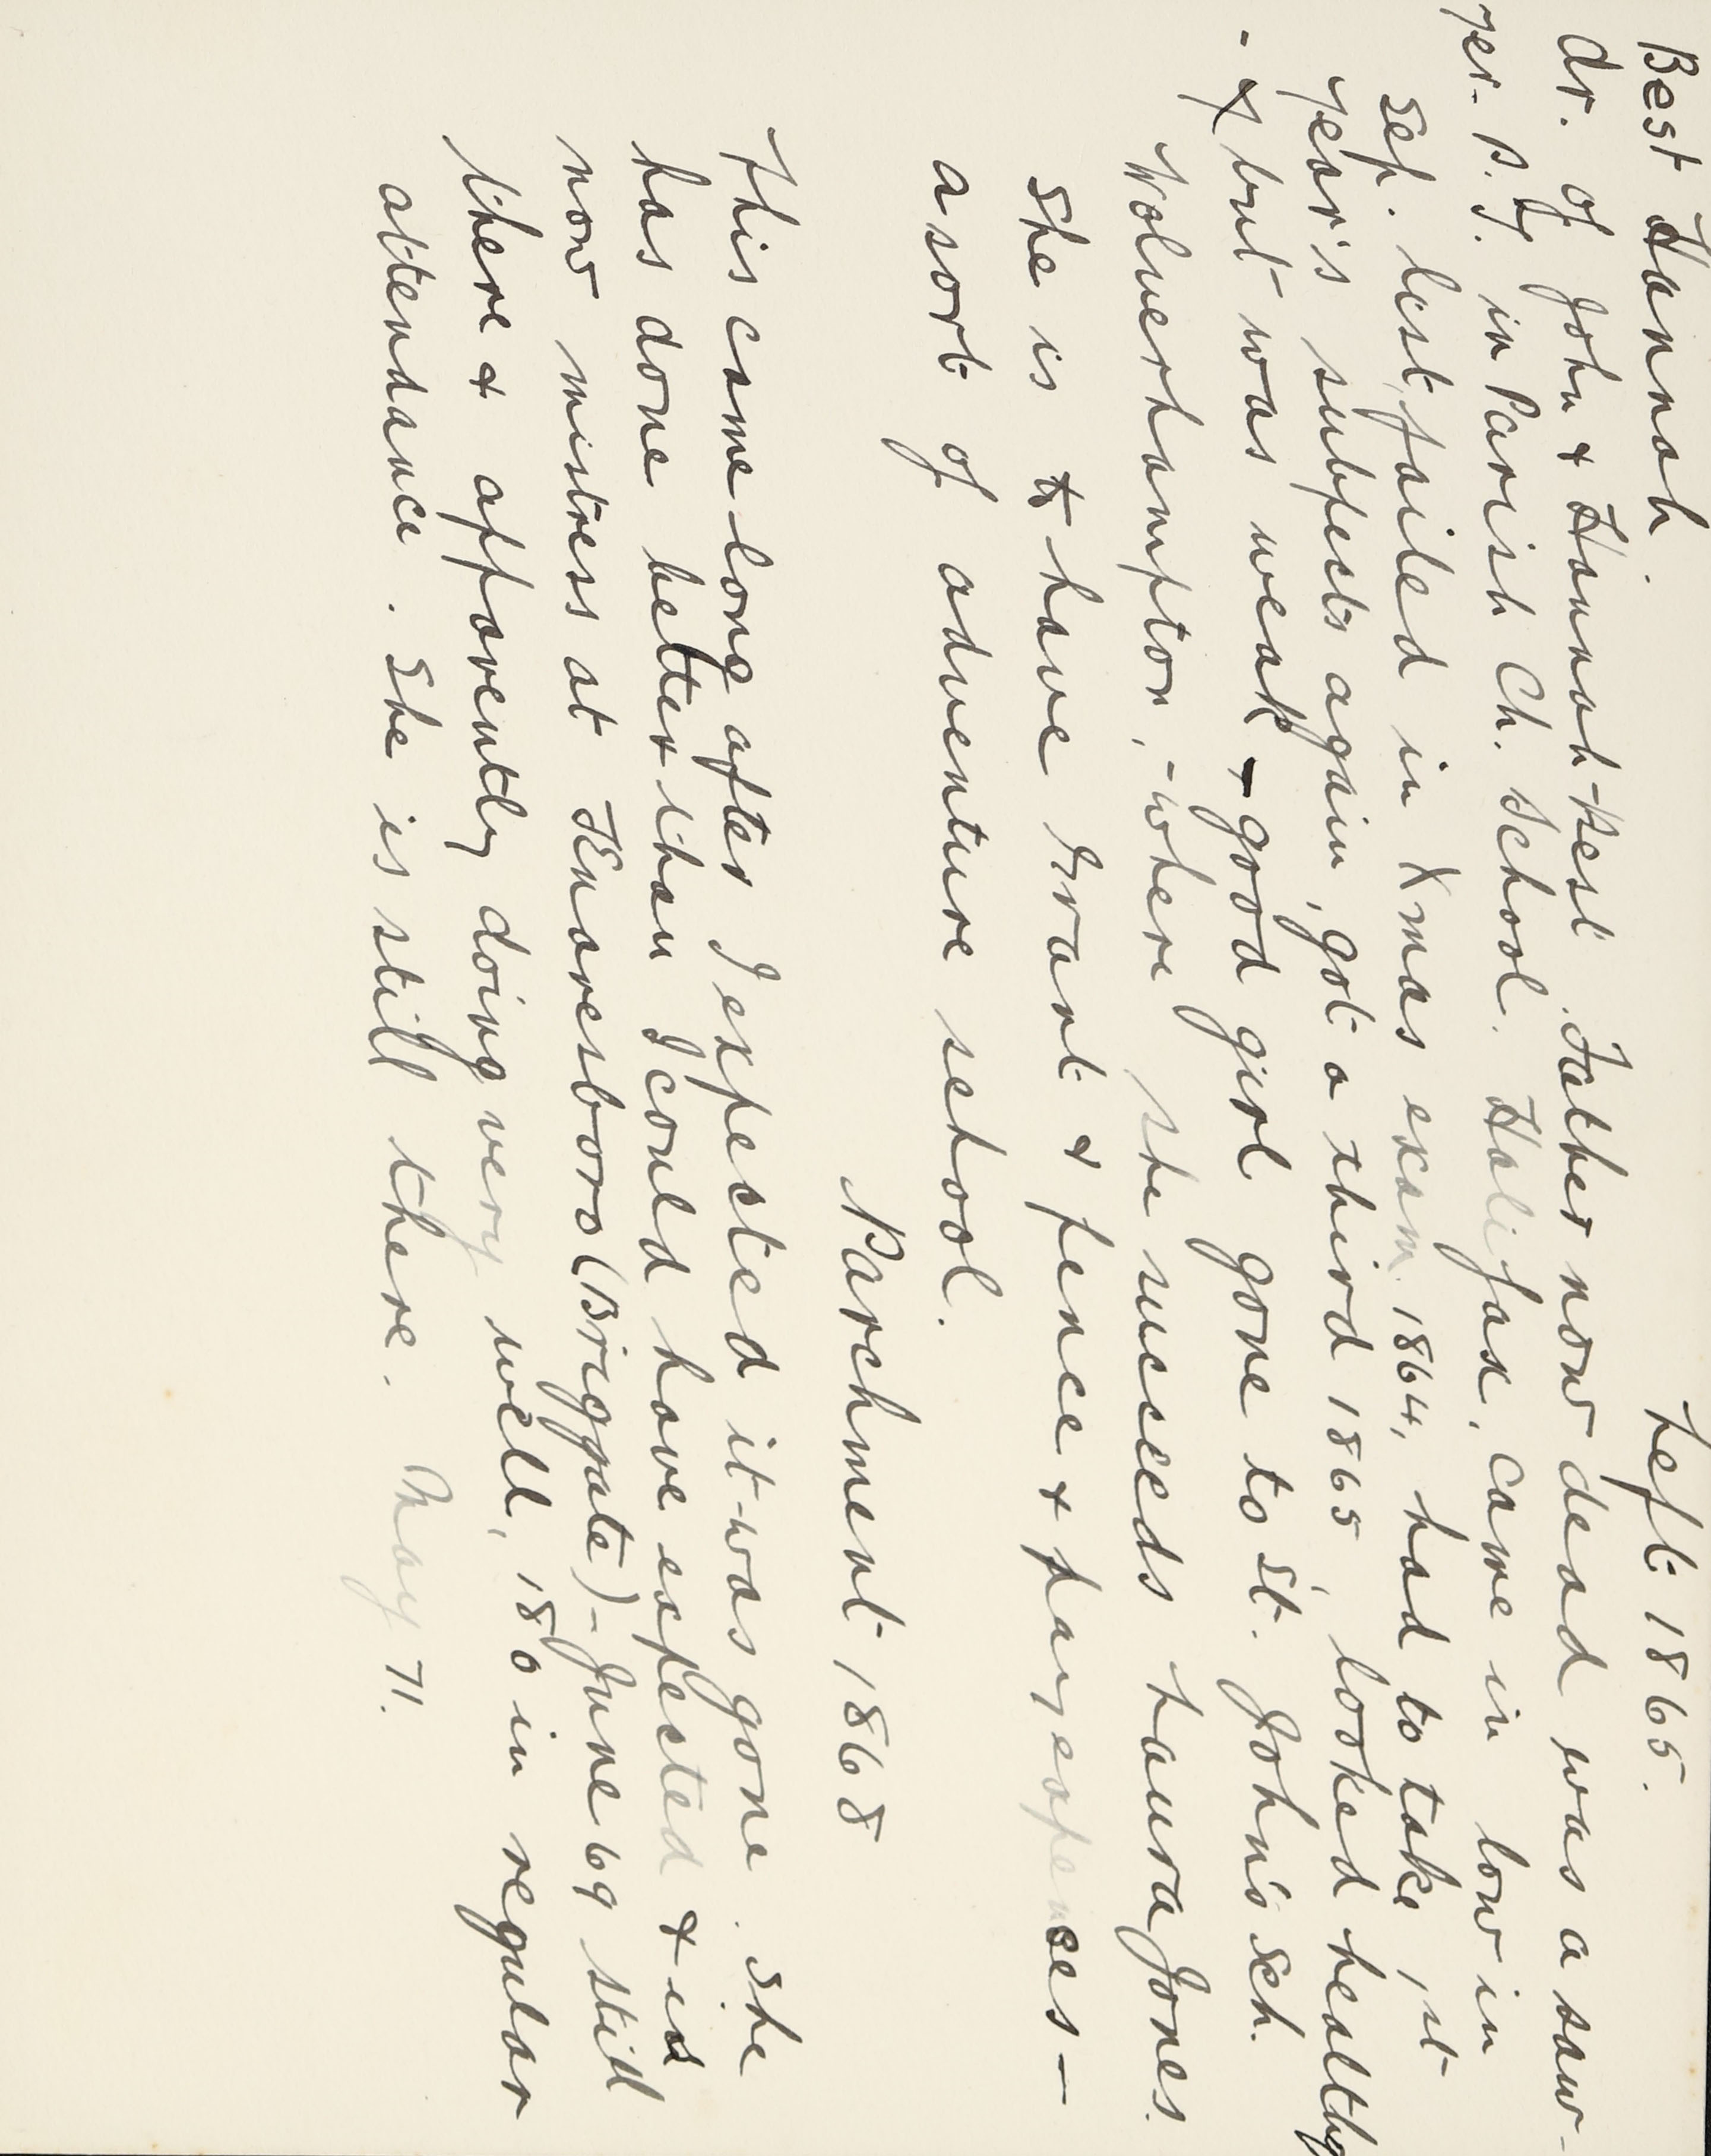 Best Hannah. Left 1865.
dr. of John & Hannah Best. Father now dead was a saw-
yer. P.T. in Parish Ch. School. Halifax, came in low in
Sch. list, failed in Xmas exam. 1864, had to take 1st
year's subjects again, got a third 1865, looked healthy
- x but was weak - good girl gone to St. John's Sch.
Wolverhampton, - where she succeeds Laura Jones.
She is to have Grant & pence & pay expenses -
a sort of adventure school.
Parchment 1868
This came long after I expected it was gone. She
has done better than I could have expected & is
now mistress at Knaresboro (Briggate) - June 69 still
there & apparently doing very well, 180 in regular
attendance. She is still there. May 71.